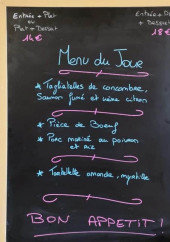 Entrée + Plat
ou
Plat + Dessert
14€
Entrée +
+ Dessert
18€
Menu du Jour
* Tagliatelles de concombre,
Saumon fumé et crème citron
* Pièce de Boeuf
* Porc mariné au poivron
et riz
* Tartelette amande, myrtille
BON APPETIT !